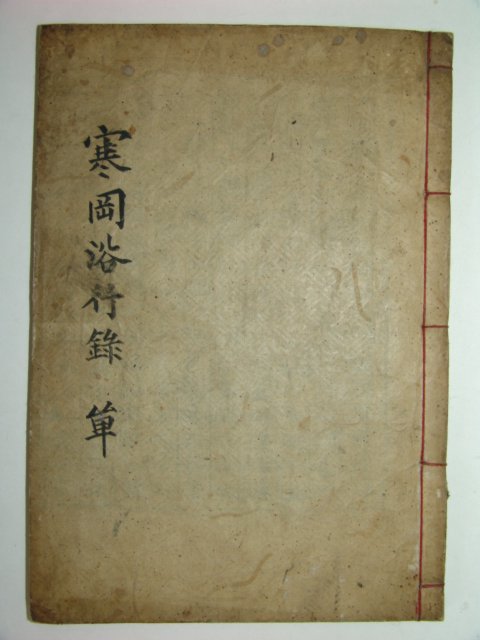 寒岡浴行錄 單